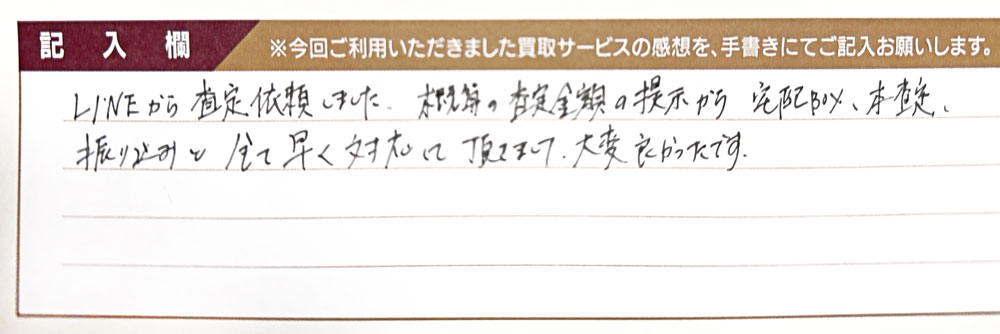 記入欄
※今回ご利用いただきました買取サービスの感想を、手書きにてご記入お願いします。
LINEから査定依頼しました。概算の査定金額の提示から宅配BOX、本査定、
振り込みと全て早く対応して頂きまして、大変良かったです。